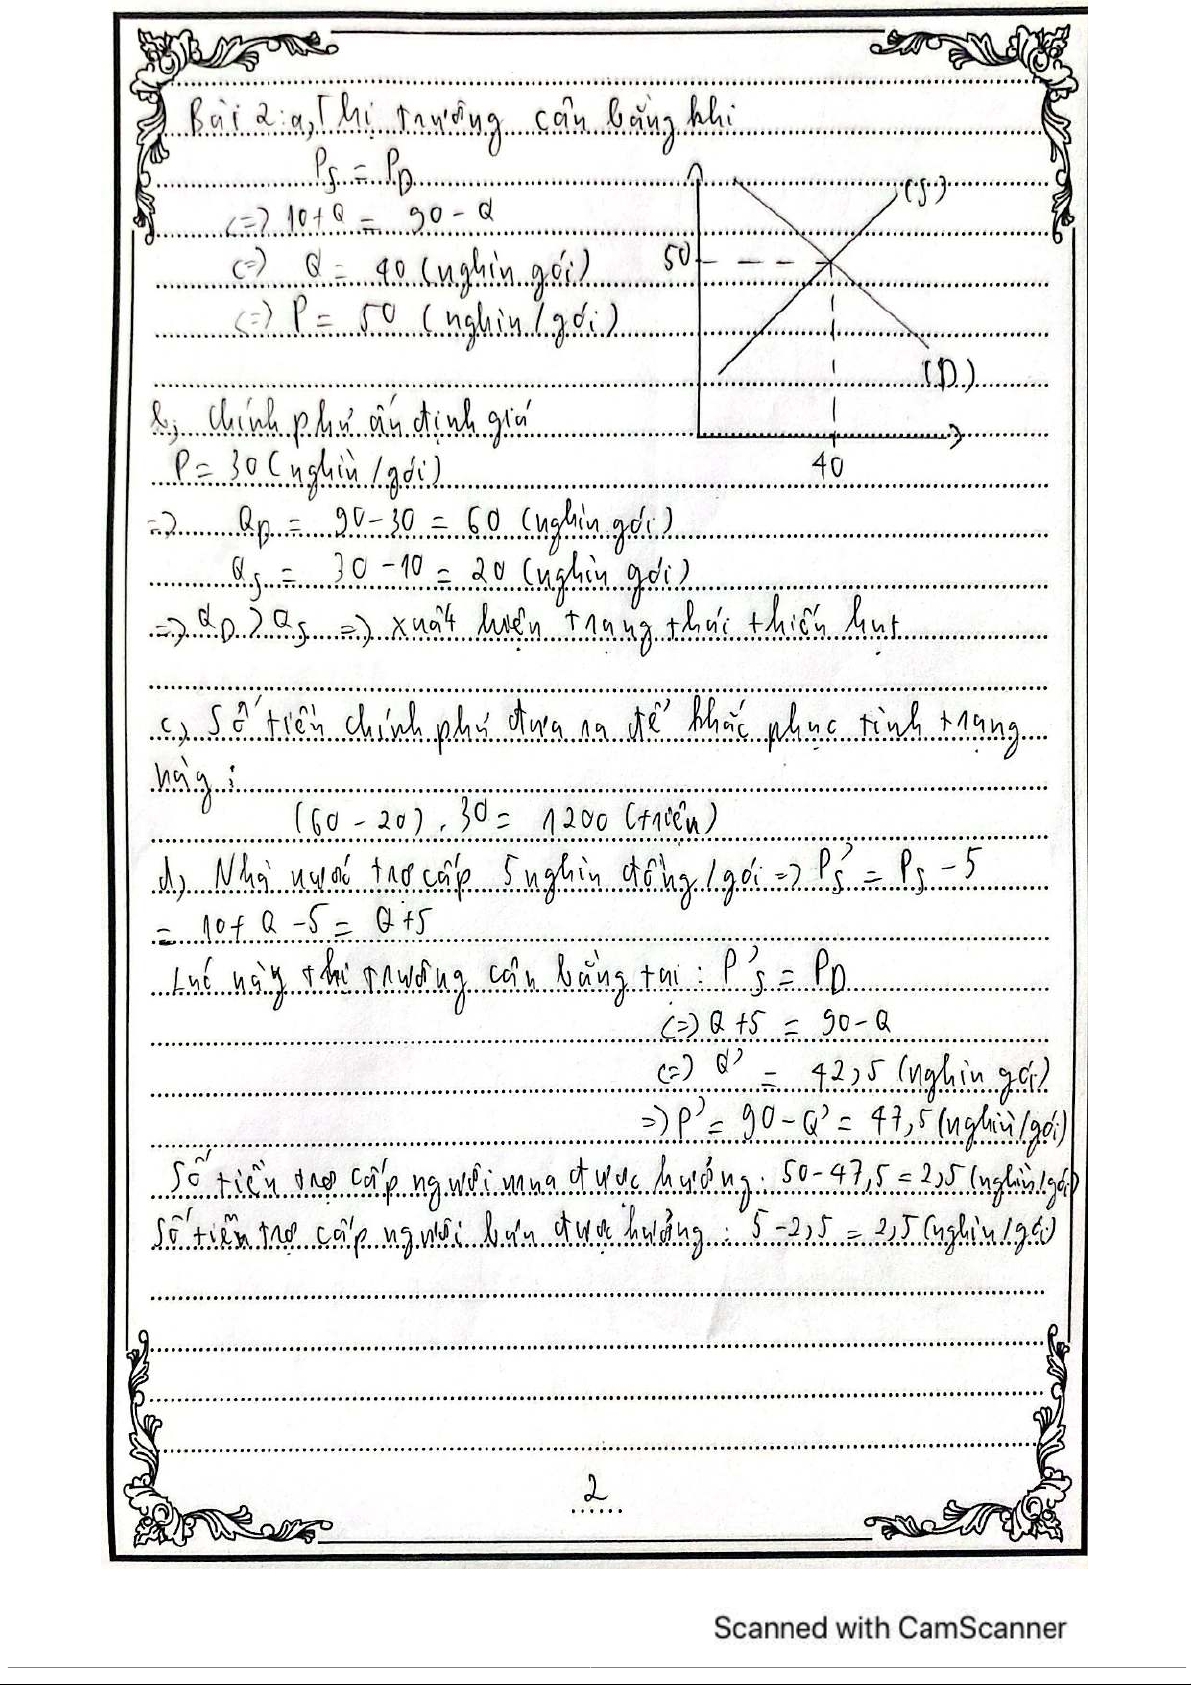 Bài 2: a, Thị trường cân bằng khi
P_S = P_D
(=) 10 + Q = 90 - Q
(=) Q = 40 (nghìn gói)
(=) P = 50 (nghìn / gói)
(S)
50
(D)
40
b, Chính phủ ấn định giá
P = 30 (nghìn / gói)
=> Q_D = 90 - 30 = 60 (nghìn gói)
Q_S = 30 - 10 = 20 (nghìn gói)
=> Q_D > Q_S => xuất hiện trạng thái thiếu hụt
c, Số tiền chính phủ đưa ra để khắc phục tình trạng
này :
(60 - 20) . 30 = 1200 (triệu)
d, Nhà nước trợ cấp 5 nghìn đồng / gói => P'_S = P_S - 5
= 10 + Q - 5 = Q + 5
Lúc này thị trường cân bằng tại : P'_S = P_D
(=) Q + 5 = 90 - Q
(=) Q' = 42,5 (nghìn gói)
=> P' = 90 - Q' = 47,5 (nghìn / gói)
Số tiền trợ cấp người mua được hưởng : 50 - 47,5 = 2,5 (nghìn / gói)
Số tiền trợ cấp người bán được hưởng : 5 - 2,5 = 2,5 (nghìn / gói)
2
Scanned with CamScanner